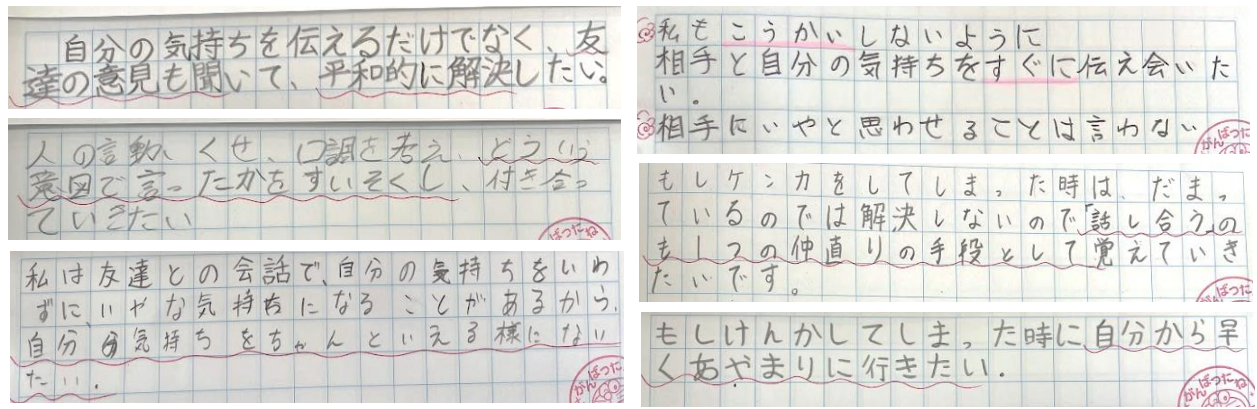 自分の気持ちを伝えるだけでなく、友
達の意見も聞いて、平和的に解決したい。
人の言動、くせ、口調を考え、どういう
意図で言ったかをすいそくし、付き合っ
ていきたい
私は友達との会話で、自分の気持ちをいわ
ずに、いやな気持ちになることがあるから、
自分の気持ちをちゃんといえる様にない
たい。
私もこうかいしないように
相手と自分の気持ちをすぐに伝え会いた
い。
相手にいやと思わせることは言わない
がんばったね
もしケンカをしてしまった時は、だまっ
ているのでは解決しないので「話し合う」の
も1つの仲直りの手段として覚えていき
たいです。
もしけんかしてしまった時に、自分から早
くあやまりに行きたい。
がんばったね